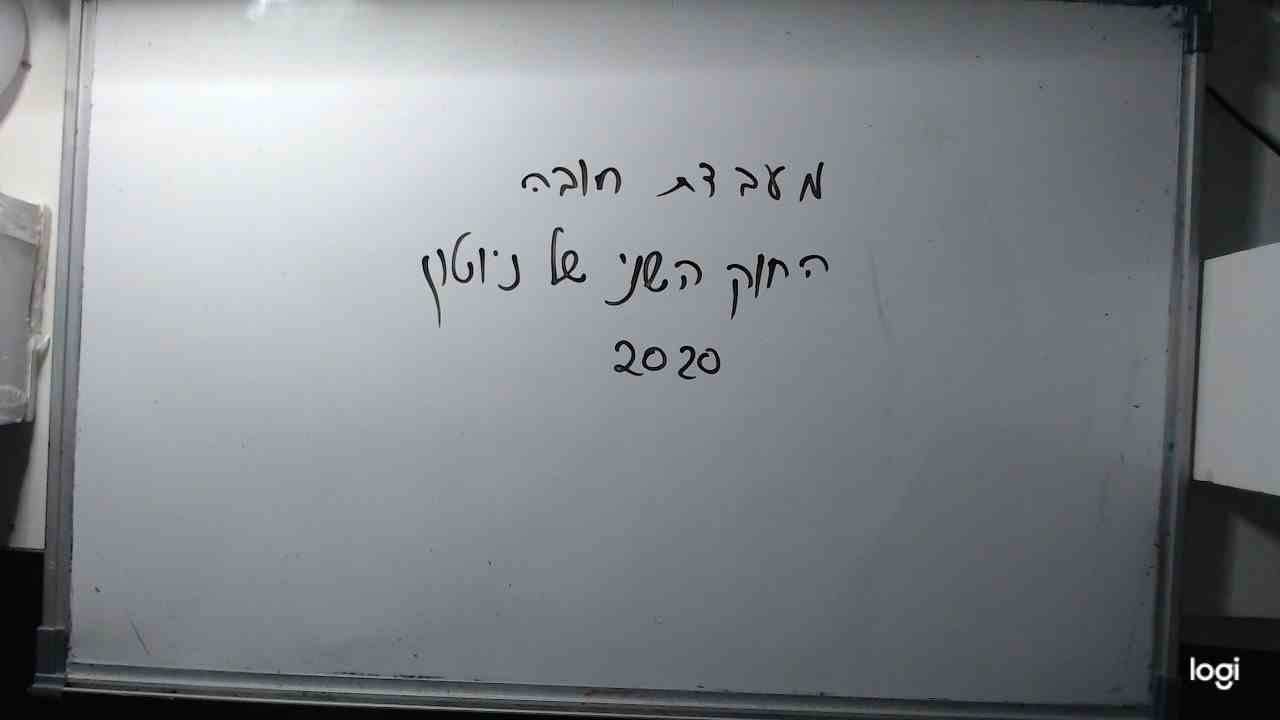 מעבדת חובה
החוק השני של ניוטון
2020
logi